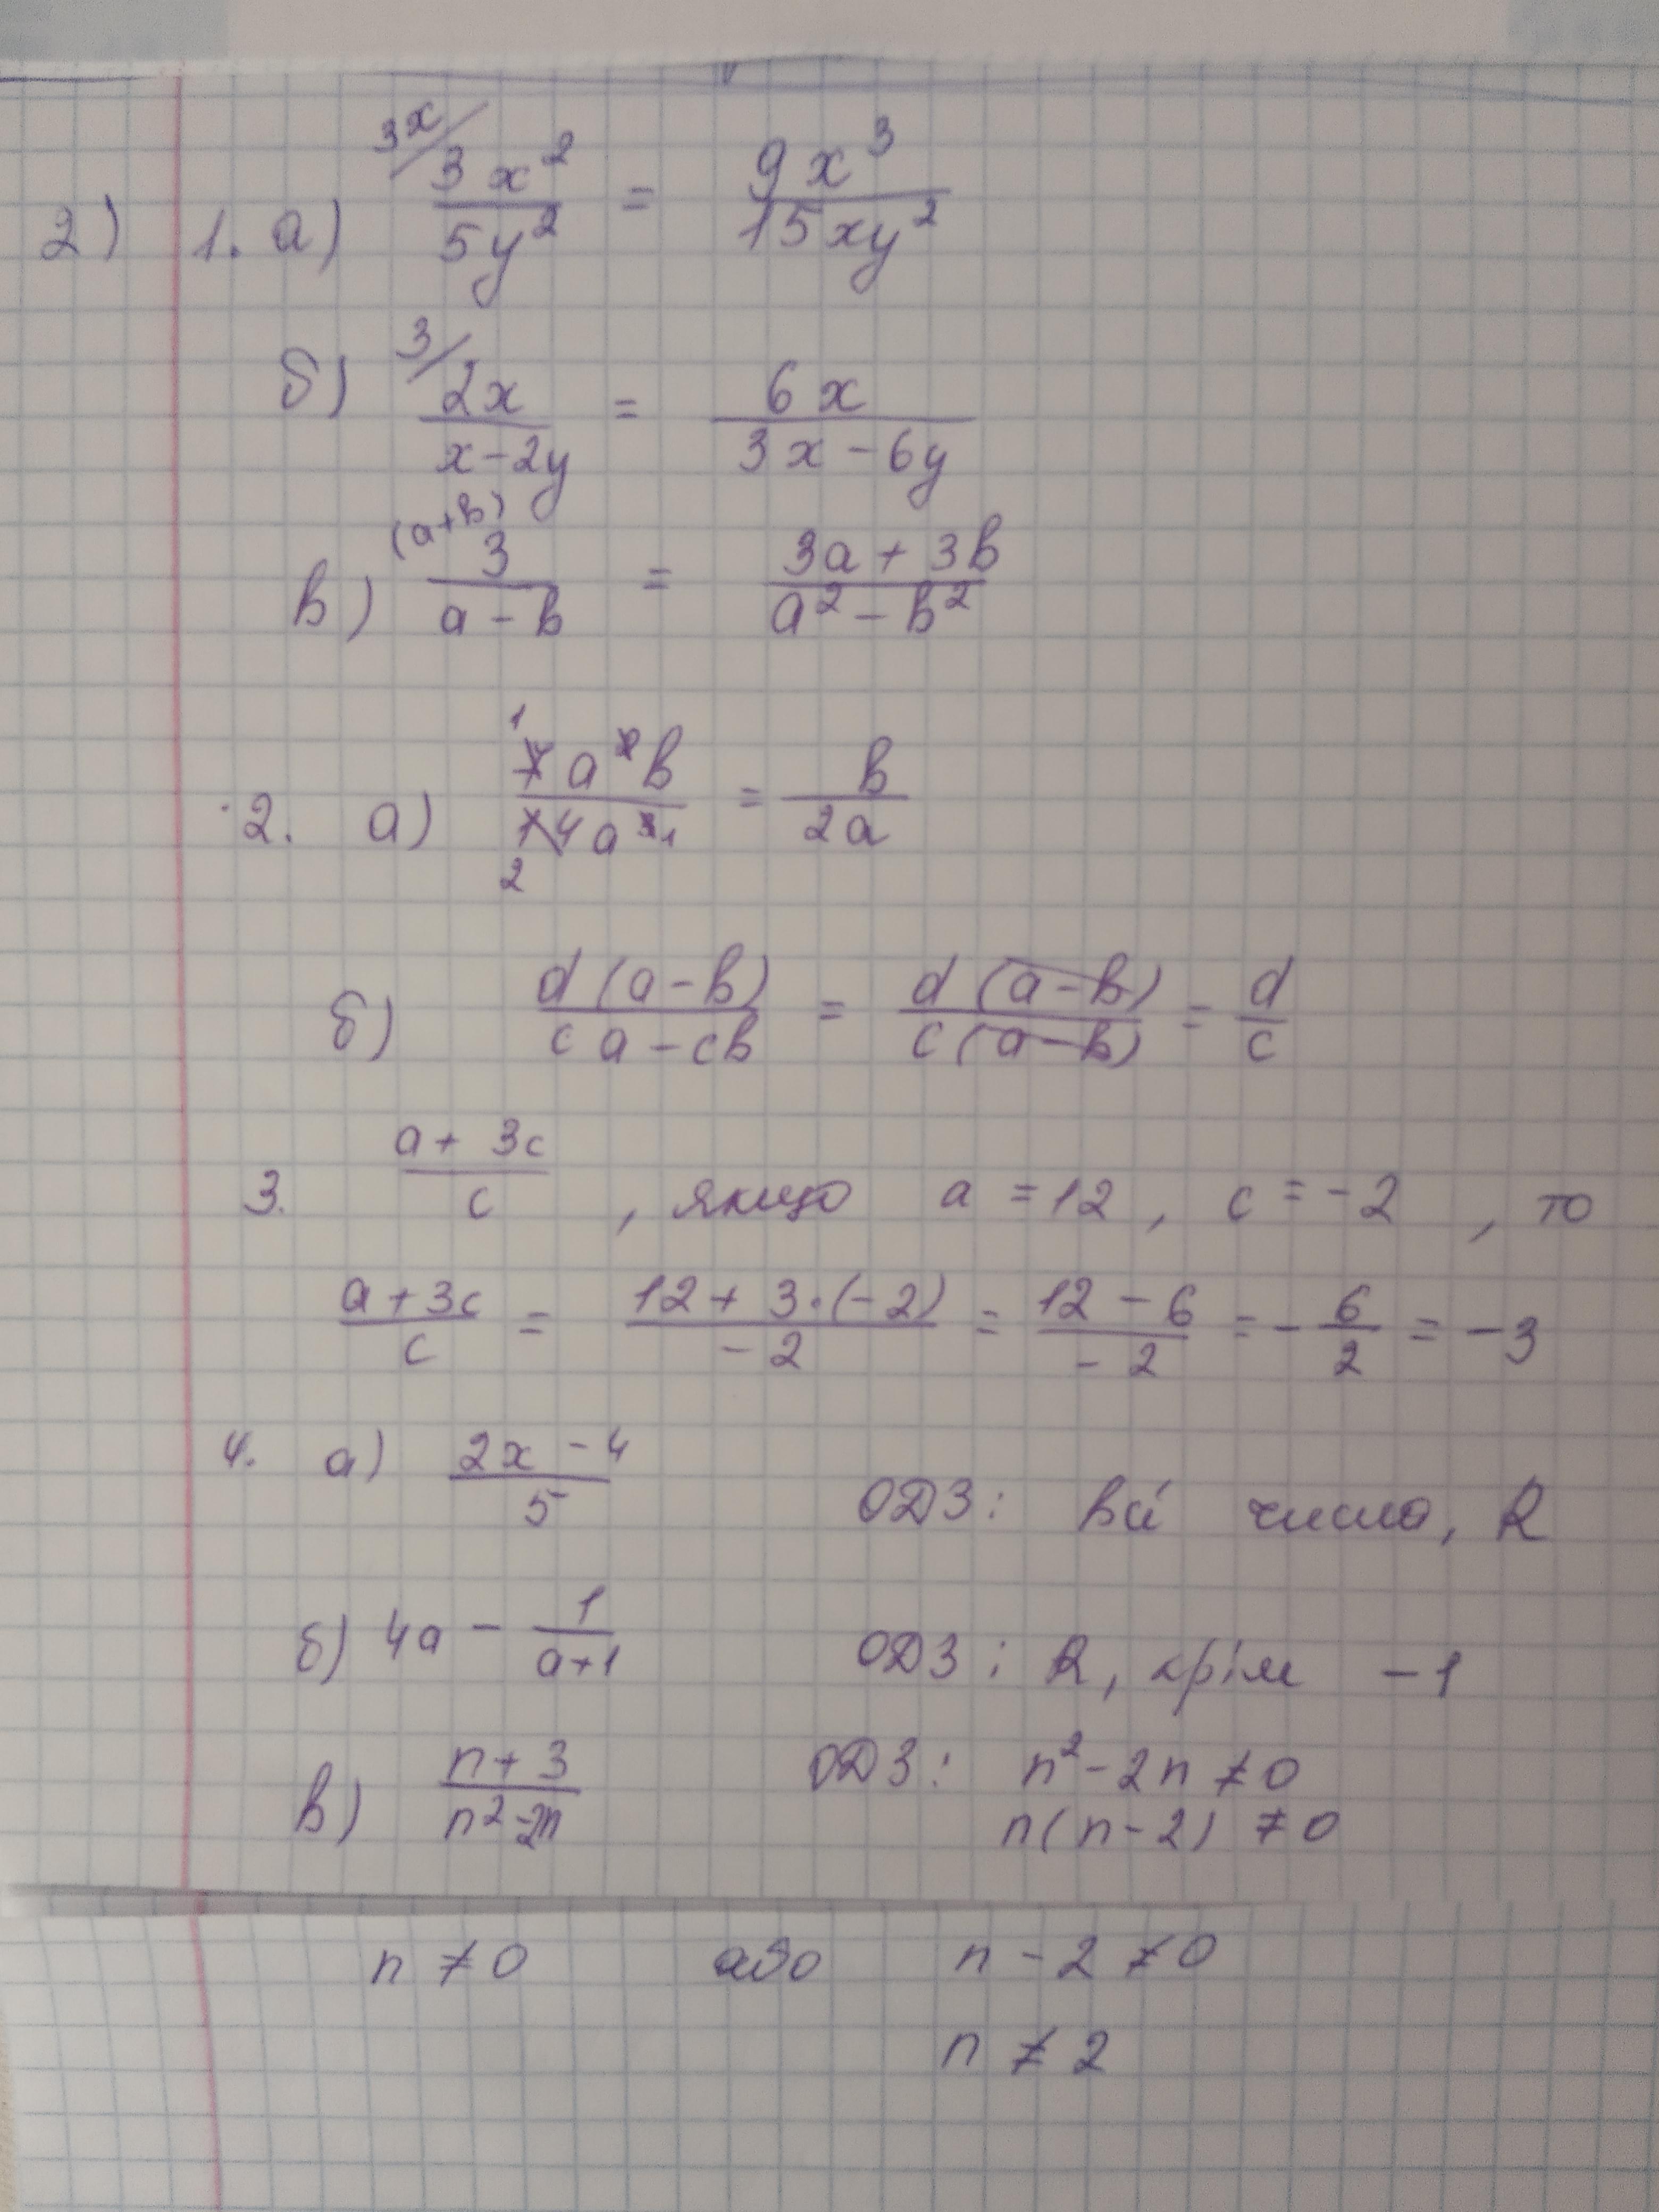 2) 1. а) 3x/ 3x²/5y² = 9x³/15xy²
б) 3/ 2x/x-2y = 6x/3x-6y
в) (a+b) 3/a-b = 3a+3b/a²-b²
2. а) 7a²b/14a³ = b/2a
б) d(a-b)/ca-cb = d(a-b)/c(a-b) = d/c
3. a+3c/c , якщо a=12, c=-2, то
a+3c/c = 12+3·(-2)/-2 = 12-6/-2 = -6/2 = -3
4. а) 2x-4/5 ОДЗ: всі числа, R
б) 4a - 1/a+1 ОДЗ: R, крім -1
в) n+3/n²-2n ОДЗ: n²-2n≠0
n(n-2)≠0
n≠0 або n-2≠0
n≠2